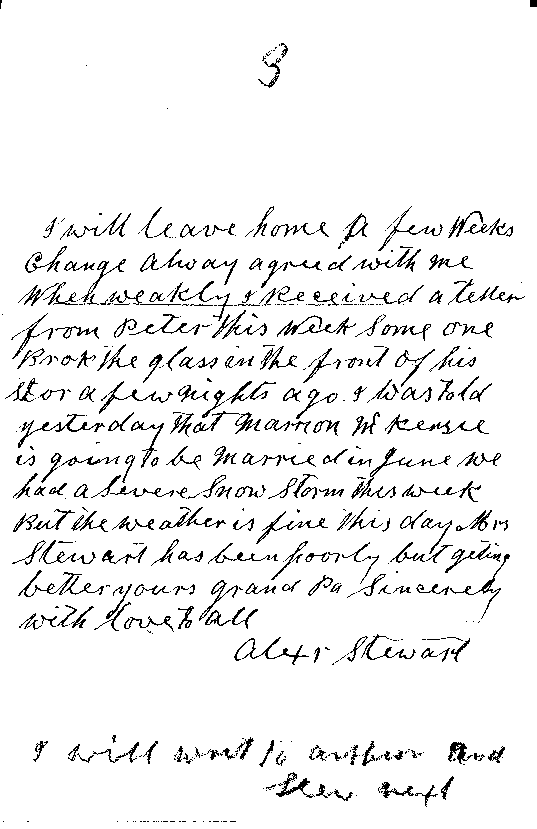 3
I will leave home A few Weeks
Change Alway agreed with me
When weakly I Received a letter
from Peter this Week Some one
Brok the glass in the front Of his
Stor a few nights ago. I was told
yesterday that Marrion McKensie
is going to be Married in June we
had a Severe Snow Storm this week
But the weather is fine this day Mrs
Stewart has been poorly but geting
better yours grand Pa Sincerely
with love to all
Alexr Stewart
I will writ to arthur and
Stew next